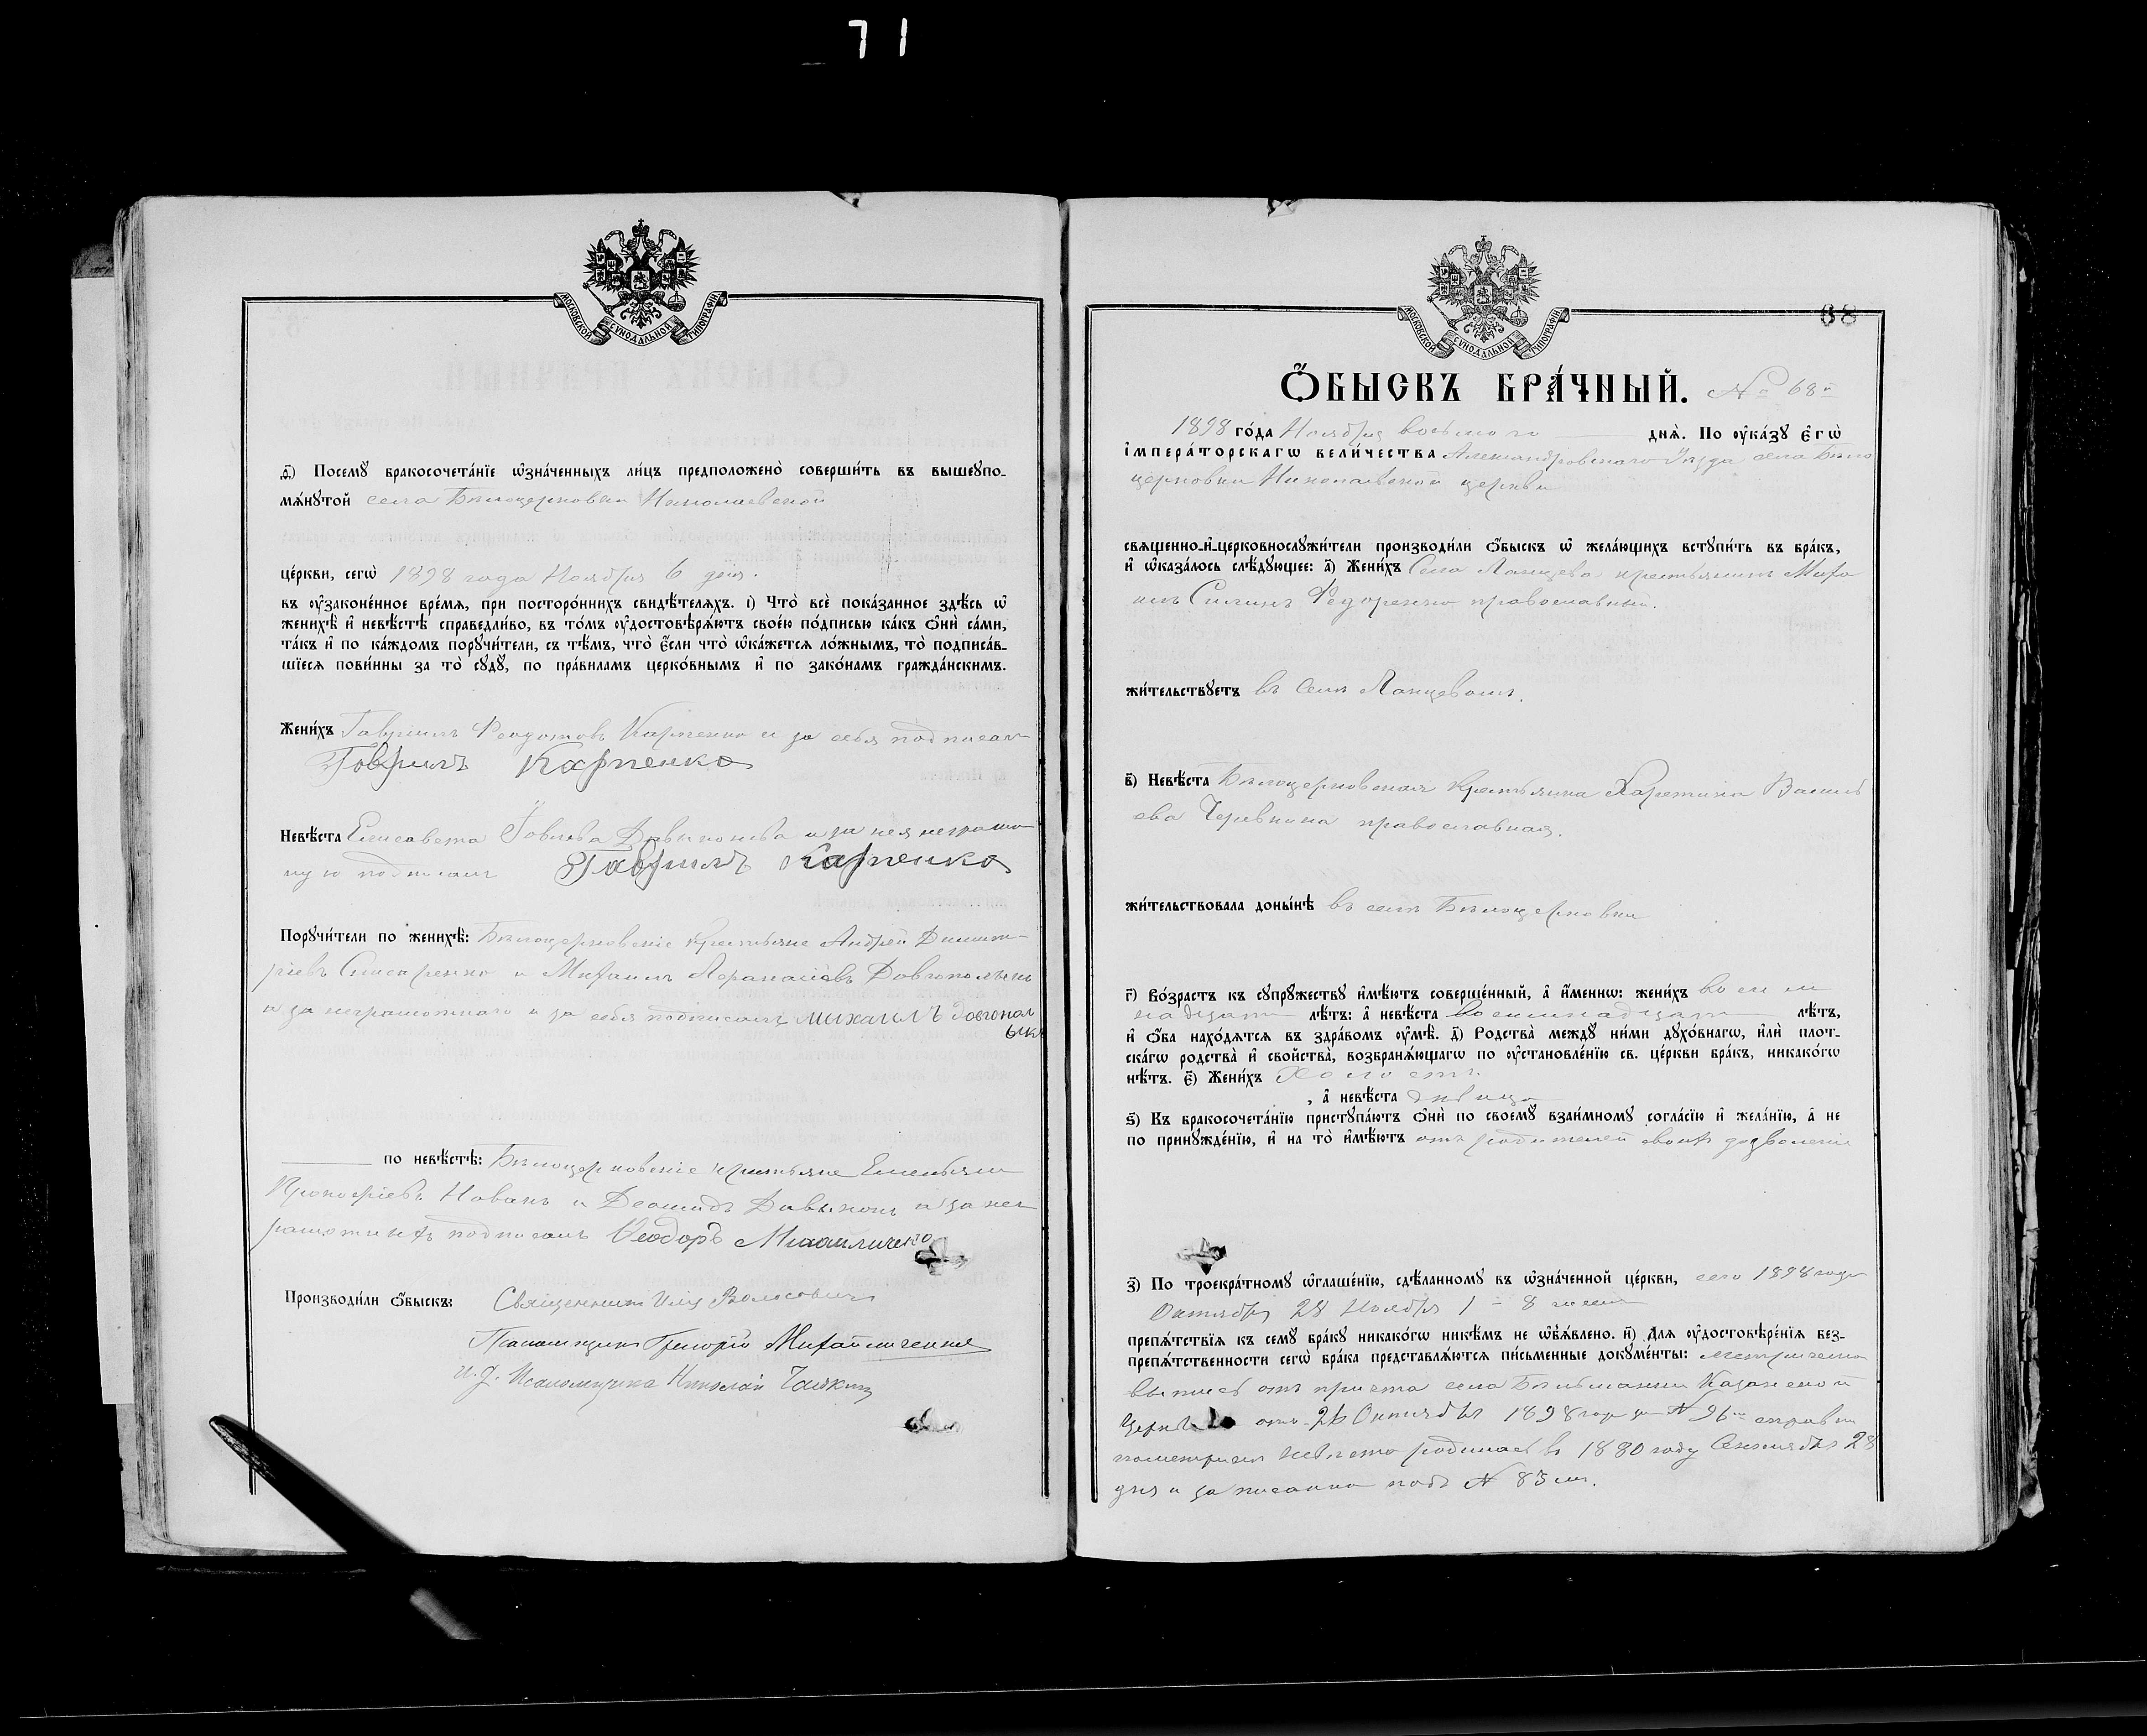 71
МОСКОВСКОЙ СѴНОДАЛЬНОЙ ТИПОГРАФІИ
ѳ҃) Посемꙋ̀ бракосочета́нїе ѡ҆зна́ченныхъ ли́цъ предположено̀ соверши́ть въ вышеꙋпо-
мѧ́нꙋтой села Бѣлоцерковки Николаевской
це́ркви, сегѡ̀ 1898 года Ноября 6 дня.
въ ᲂу҆зако́ненное вре́мѧ, при посторо́ннихъ свидѣ́телѧхъ. і҃) Что̀ всѐ пока́занное здѣ́сь ѡ҆
женихѣ̀ и҆ невѣ́стѣ справедли́во, въ то́мъ ᲂу҆достовѣрѧ́ютъ свое́ю по́дписью ка́къ ѻ҆нѝ са́ми,
та́къ и҆ по ка́ждомъ порꙋчи́тели, съ тѣ́мъ, что̀ є҆́сли что̀ ѡ҆ка́жетсѧ ло́жнымъ, то̀ подписа́в-
шїесѧ пови́нны за то̀ сꙋдꙋ̀, по пра́виламъ церко́внымъ и҆ по зако́намъ гражда́нскимъ.
Жени́хъ Гавріилъ Феодотовъ Карпенко и за себя подписалъ
Гаврилъ Карпенко
Невѣ́ста Елисавета Іовлева и за нея неграмот
ную подписалъ Гаврилъ Карпенко
Порꙋчи́тели по женихѣ̀: Бѣлоцерковскіе крестьяне Андрей Димит-
ріевъ и Михаилъ Афанасіевъ
и за неграмотнаго и за себя подписалъ Михаилъ довгопол
ыкъ
по невѣ́стѣ: Бѣлоцерковскіе крестьяне Емельянъ
Прокофіевъ и и за нег
рамотныхъ подписалъ Ѳеодоръ Михайличенко
Производи́ли ѻ҆́быскъ: Священникъ Илія Волосовичъ
Псаломщикъ Григорій Михайличенко
и. д. Псаломщика Николай
МОСКОВСКОЙ СѴНОДАЛЬНОЙ ТИПОГРАФІИ
68
Ѻ҆́БЫСКЪ БРА́ЧНЫЙ. № 68й
1898 го́да Ноября восьмого днѧ̀. По ᲂу҆ка́зꙋ є҆гѡ̀
і҆мпера́торскагѡ вели́чества Александровскаго Уѣзда села Бѣло
церковки Николаевской церкви
свѧще́нно-и҆-церковнослꙋжи́тели производи́ли ѻ҆́быскъ ѡ҆ жела́ющихъ встꙋпи́ть въ бра́къ,
и҆ ѡ҆каза́лось слѣ́дꙋющее: а҃) Жени́хъ Села Ланцева крестьянинъ Миха
илъ Силинъ Федоренко православный.
жи́тельствꙋетъ въ селѣ Ланцевомъ.
в҃) Невѣ́ста Бѣлоцерковская крестьянка Харитина Василь
ева православная.
жи́тельствовала доны́нѣ въ селѣ Бѣлоцерковки
г҃) Во́зрастъ къ сꙋпрꙋ́жествꙋ и҆мѣ́ютъ соверше́нный, а҆ и҆́меннѡ: жени́хъ восем
надцать лѣ́тъ: а҆ невѣ́ста восемнадцать лѣ́тъ,
и҆ ѻ҆́ба нахо́дѧтсѧ въ здра́вомъ ᲂу҆мѣ̀. д҃) Родства̀ междꙋ̀ ни́ми дꙋхо́внагѡ, и҆лѝ плот-
ска́гѡ родства̀ и҆ сво́йства, возбранѧ́ющагѡ по ᲂу҆становле́нїю св. це́ркви бра́къ, никако́гѡ
нѣ́тъ. є҃) Жени́хъ Холостъ.
, а҆ невѣ́ста дѣвица
ѕ҃) Къ бракосочета́нїю пристꙋпа́ютъ ѻ҆нѝ по своемꙋ̀ взаи́мномꙋ согла́сїю и҆ жела́нїю, а҆ не
по принꙋжде́нїю, и҆ на то̀ и҆мѣ́ютъ отъ родителей своихъ дозволеніе
з҃) По троекра́тномꙋ ѡ҆глаше́нїю, сдѣ́ланномꙋ въ ѡ҆зна́ченной це́ркви, сего 1898 года
Октября 28 Ноября 1 - 8 числъ
препѧ́тствїѧ къ семꙋ̀ бра́кꙋ никако́гѡ никѣ́мъ не ѡ҆б̾ѧ́влено. и҃) Длѧ̀ ᲂу҆достовѣре́нїѧ без-
препѧ́тственности сегѡ̀ бра́ка представлѧ́ютсѧ пи́сьменные докꙋме́нты: метрическо
выпись отъ причта села Бѣльманки Казанской
Церкви отъ 26 Октября 1898 года за № 96м справки
по метрикѣ невѣста родилась въ 1880 году Сентября 28
дня и записанна подъ № 83 мъ.